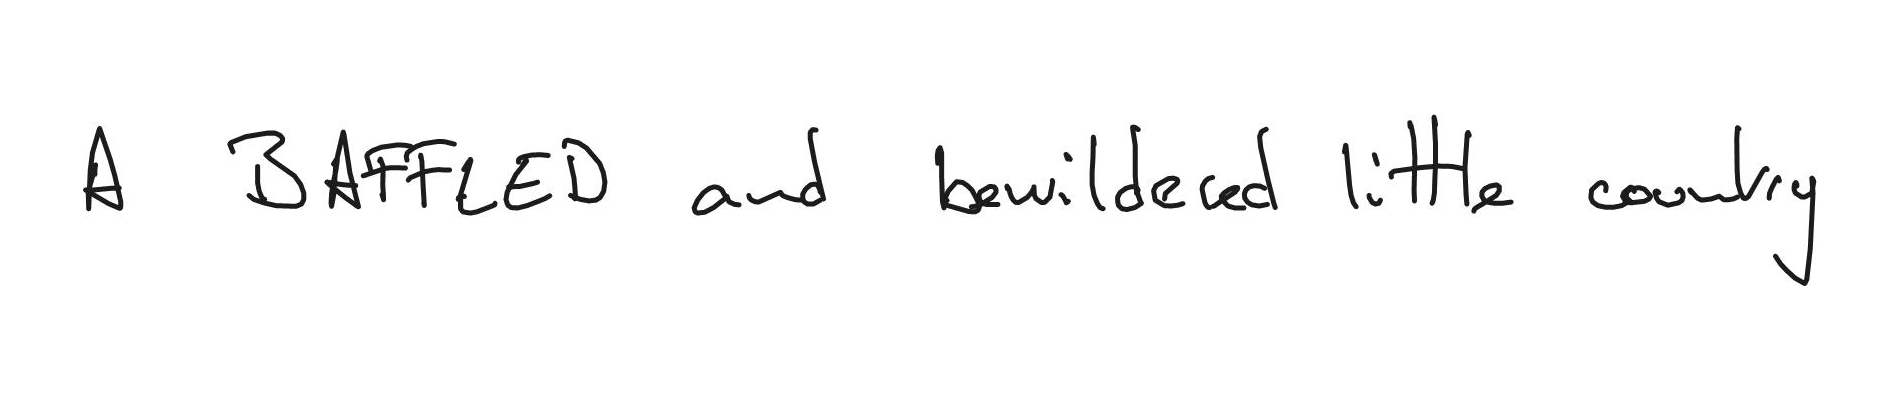 A BAFFLED and bewildered little country